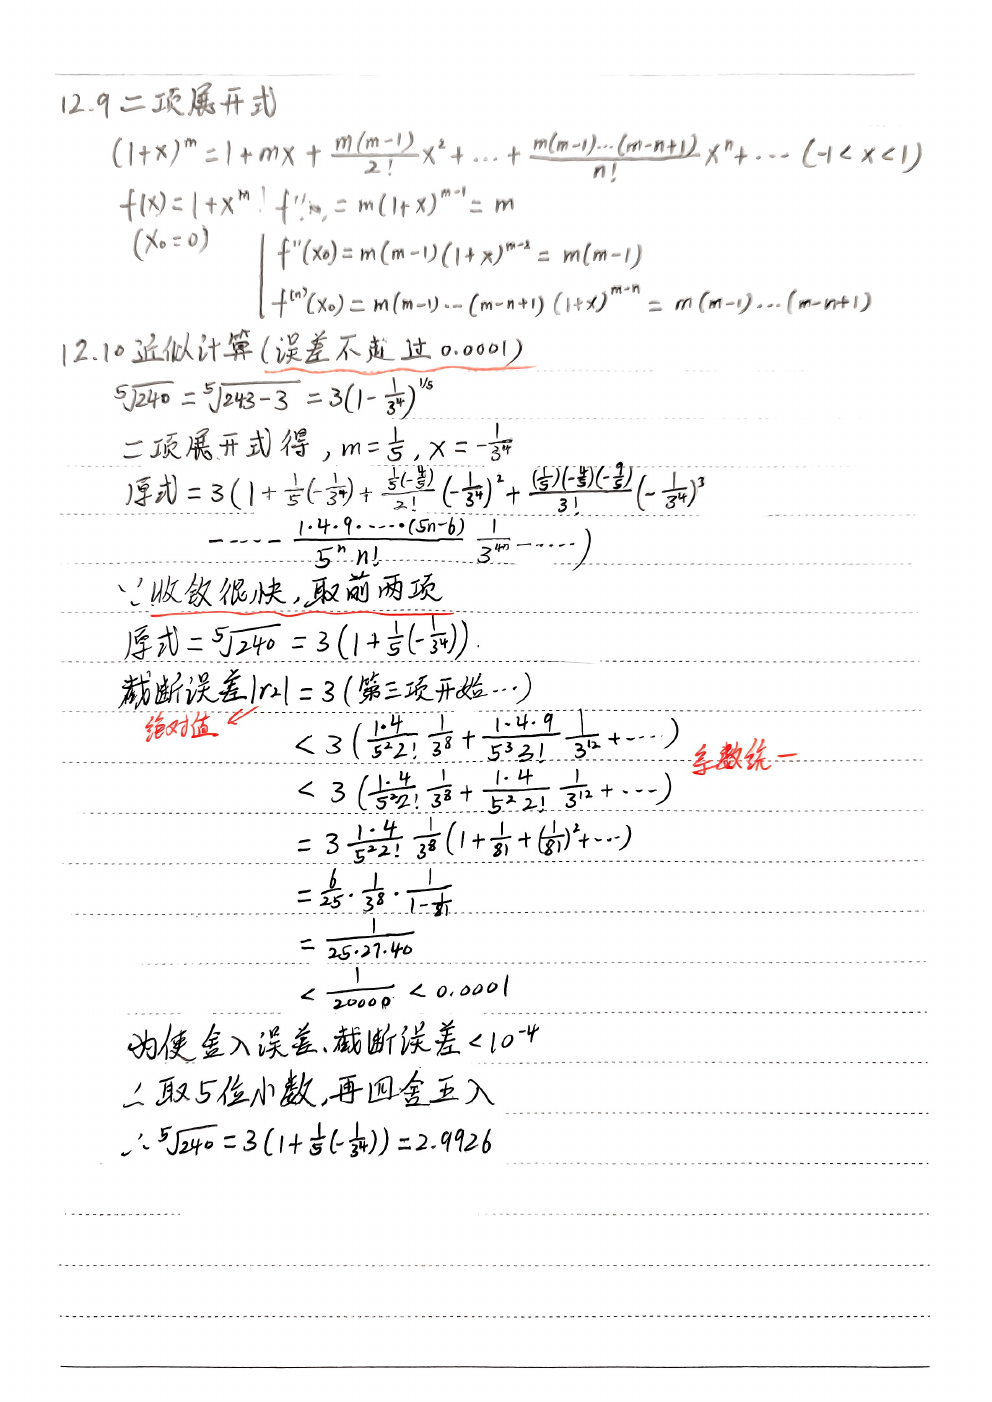 12.9 二项展开式
(1+x)^m = 1 + mx + \frac{m(m-1)}{2!}x^2 + ... + \frac{m(m-1)...(m-n+1)}{n!}x^n + ... (-1 < x < 1)
f(x) = 1+x^m | f'(x_0) = m(1+x)^{m-1} = m
(x_0=0) f''(x_0) = m(m-1)(1+x)^{m-2} = m(m-1)
f^{(n)}(x_0) = m(m-1)...(m-n+1)(1+x)^{m-n} = m(m-1)...(m-n+1)
12.10 近似计算(误差不超过0.0001)
\sqrt[5]{240} = \sqrt[5]{243-3} = 3(1-\frac{1}{3^4})^{1/5}
二项展开式得, m=\frac{1}{5}, x=-\frac{1}{3^4}
原式 = 3(1+\frac{1}{5}(-\frac{1}{3^4})+\frac{\frac{1}{5}(-\frac{4}{5})}{2!}(-\frac{1}{3^4})^2+\frac{(\frac{1}{5})(-\frac{4}{5})(-\frac{9}{5})}{3!}(-\frac{1}{3^4})^3
-...-\frac{1·4·9·...·(5n-6)}{5^n n!}\frac{1}{3^{4n}}-.....)
∵收敛很快,取前两项
原式 = \sqrt[5]{240} = 3(1+\frac{1}{5}(-\frac{1}{3^4})).
截断误差|r_2| = 3(第三项开始...)
绝对值
< 3(\frac{1·4}{5^2 2!}\frac{1}{3^8}+\frac{1·4·9}{5^3 3!}\frac{1}{3^{12}}+...)
系数统一
< 3(\frac{1·4}{5^2 2!}\frac{1}{3^8}+\frac{1·4}{5^2 2!}\frac{1}{3^{12}}+...)
= 3\frac{1·4}{5^2 2!}\frac{1}{3^8}(1+\frac{1}{81}+(\frac{1}{81})^2+...)
= \frac{6}{25}·\frac{1}{3^8}·\frac{1}{1-\frac{1}{81}}
= \frac{1}{25·27·40}
< \frac{1}{20000} < 0.0001
为使舍入误差、截断误差<10^{-4}
∴取5位小数,再四舍五入
∴\sqrt[5]{240} = 3(1+\frac{1}{5}(-\frac{1}{3^4})) = 2.9926